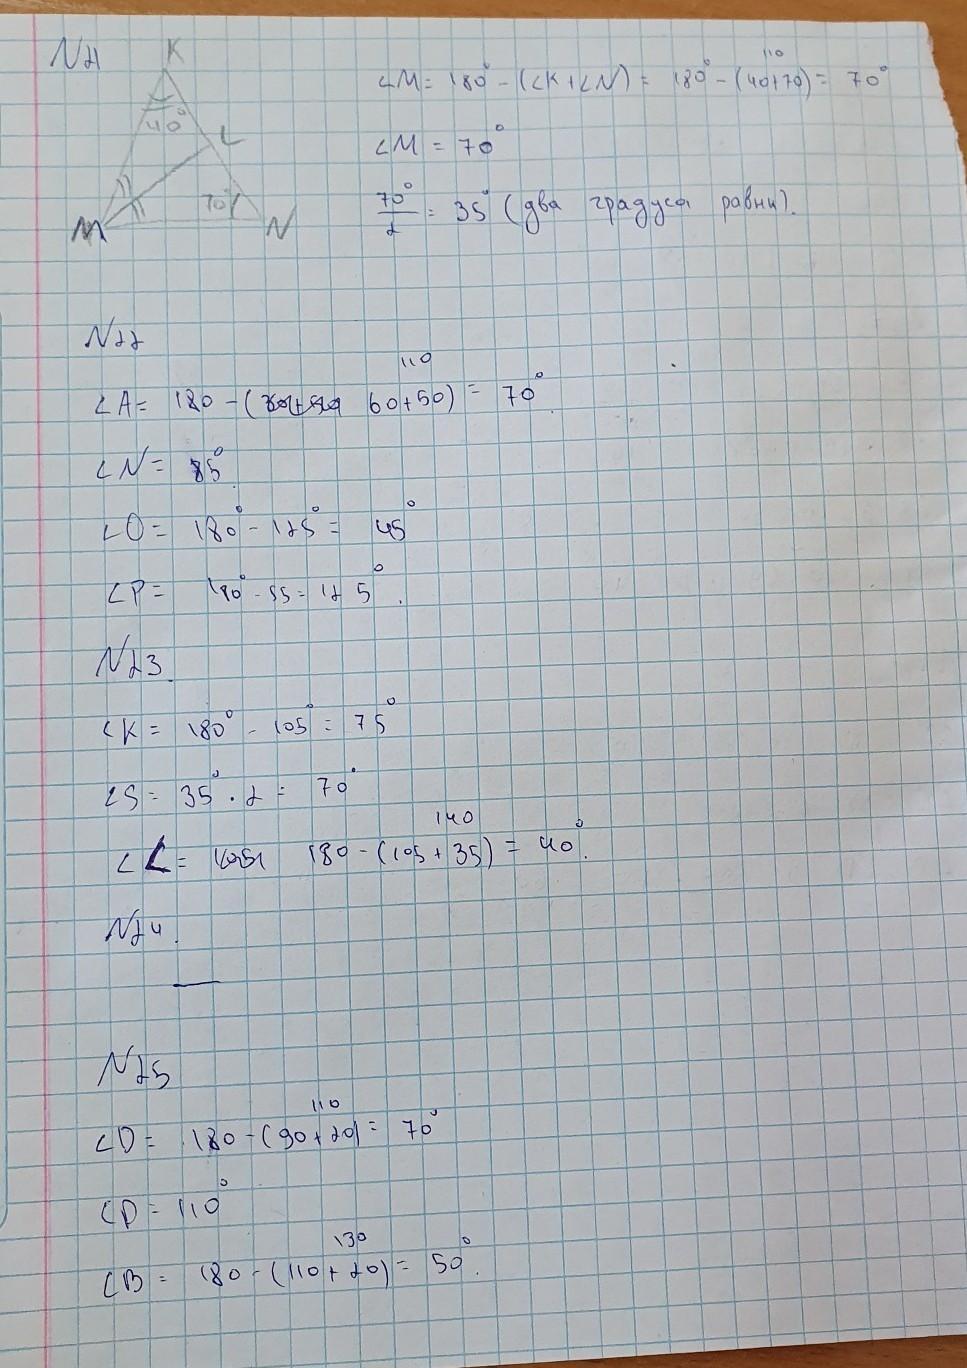 N21
K
40°
L
70°
M
N
∠M = 180° - (∠K + ∠N) = 180° - (40+70) = 70°
110
∠M = 70°
70°/2 = 35° (два градуса равны).
N22
110
∠A = 180 - ( 60+50) = 70°
∠N = 85°
∠O = 180° - 125° = 45°
∠P = 180° - 55 = 125°.
N23.
∠K = 180° - 105° = 75°
∠S = 35° · 2 = 70°
140
∠L = 180 - (105 + 35) = 40°.
N24.
—
N25
110
∠D = 180 - (90 + 20) = 70°
∠D = 110°
130
∠B = 180 - (110 + 20) = 50°.